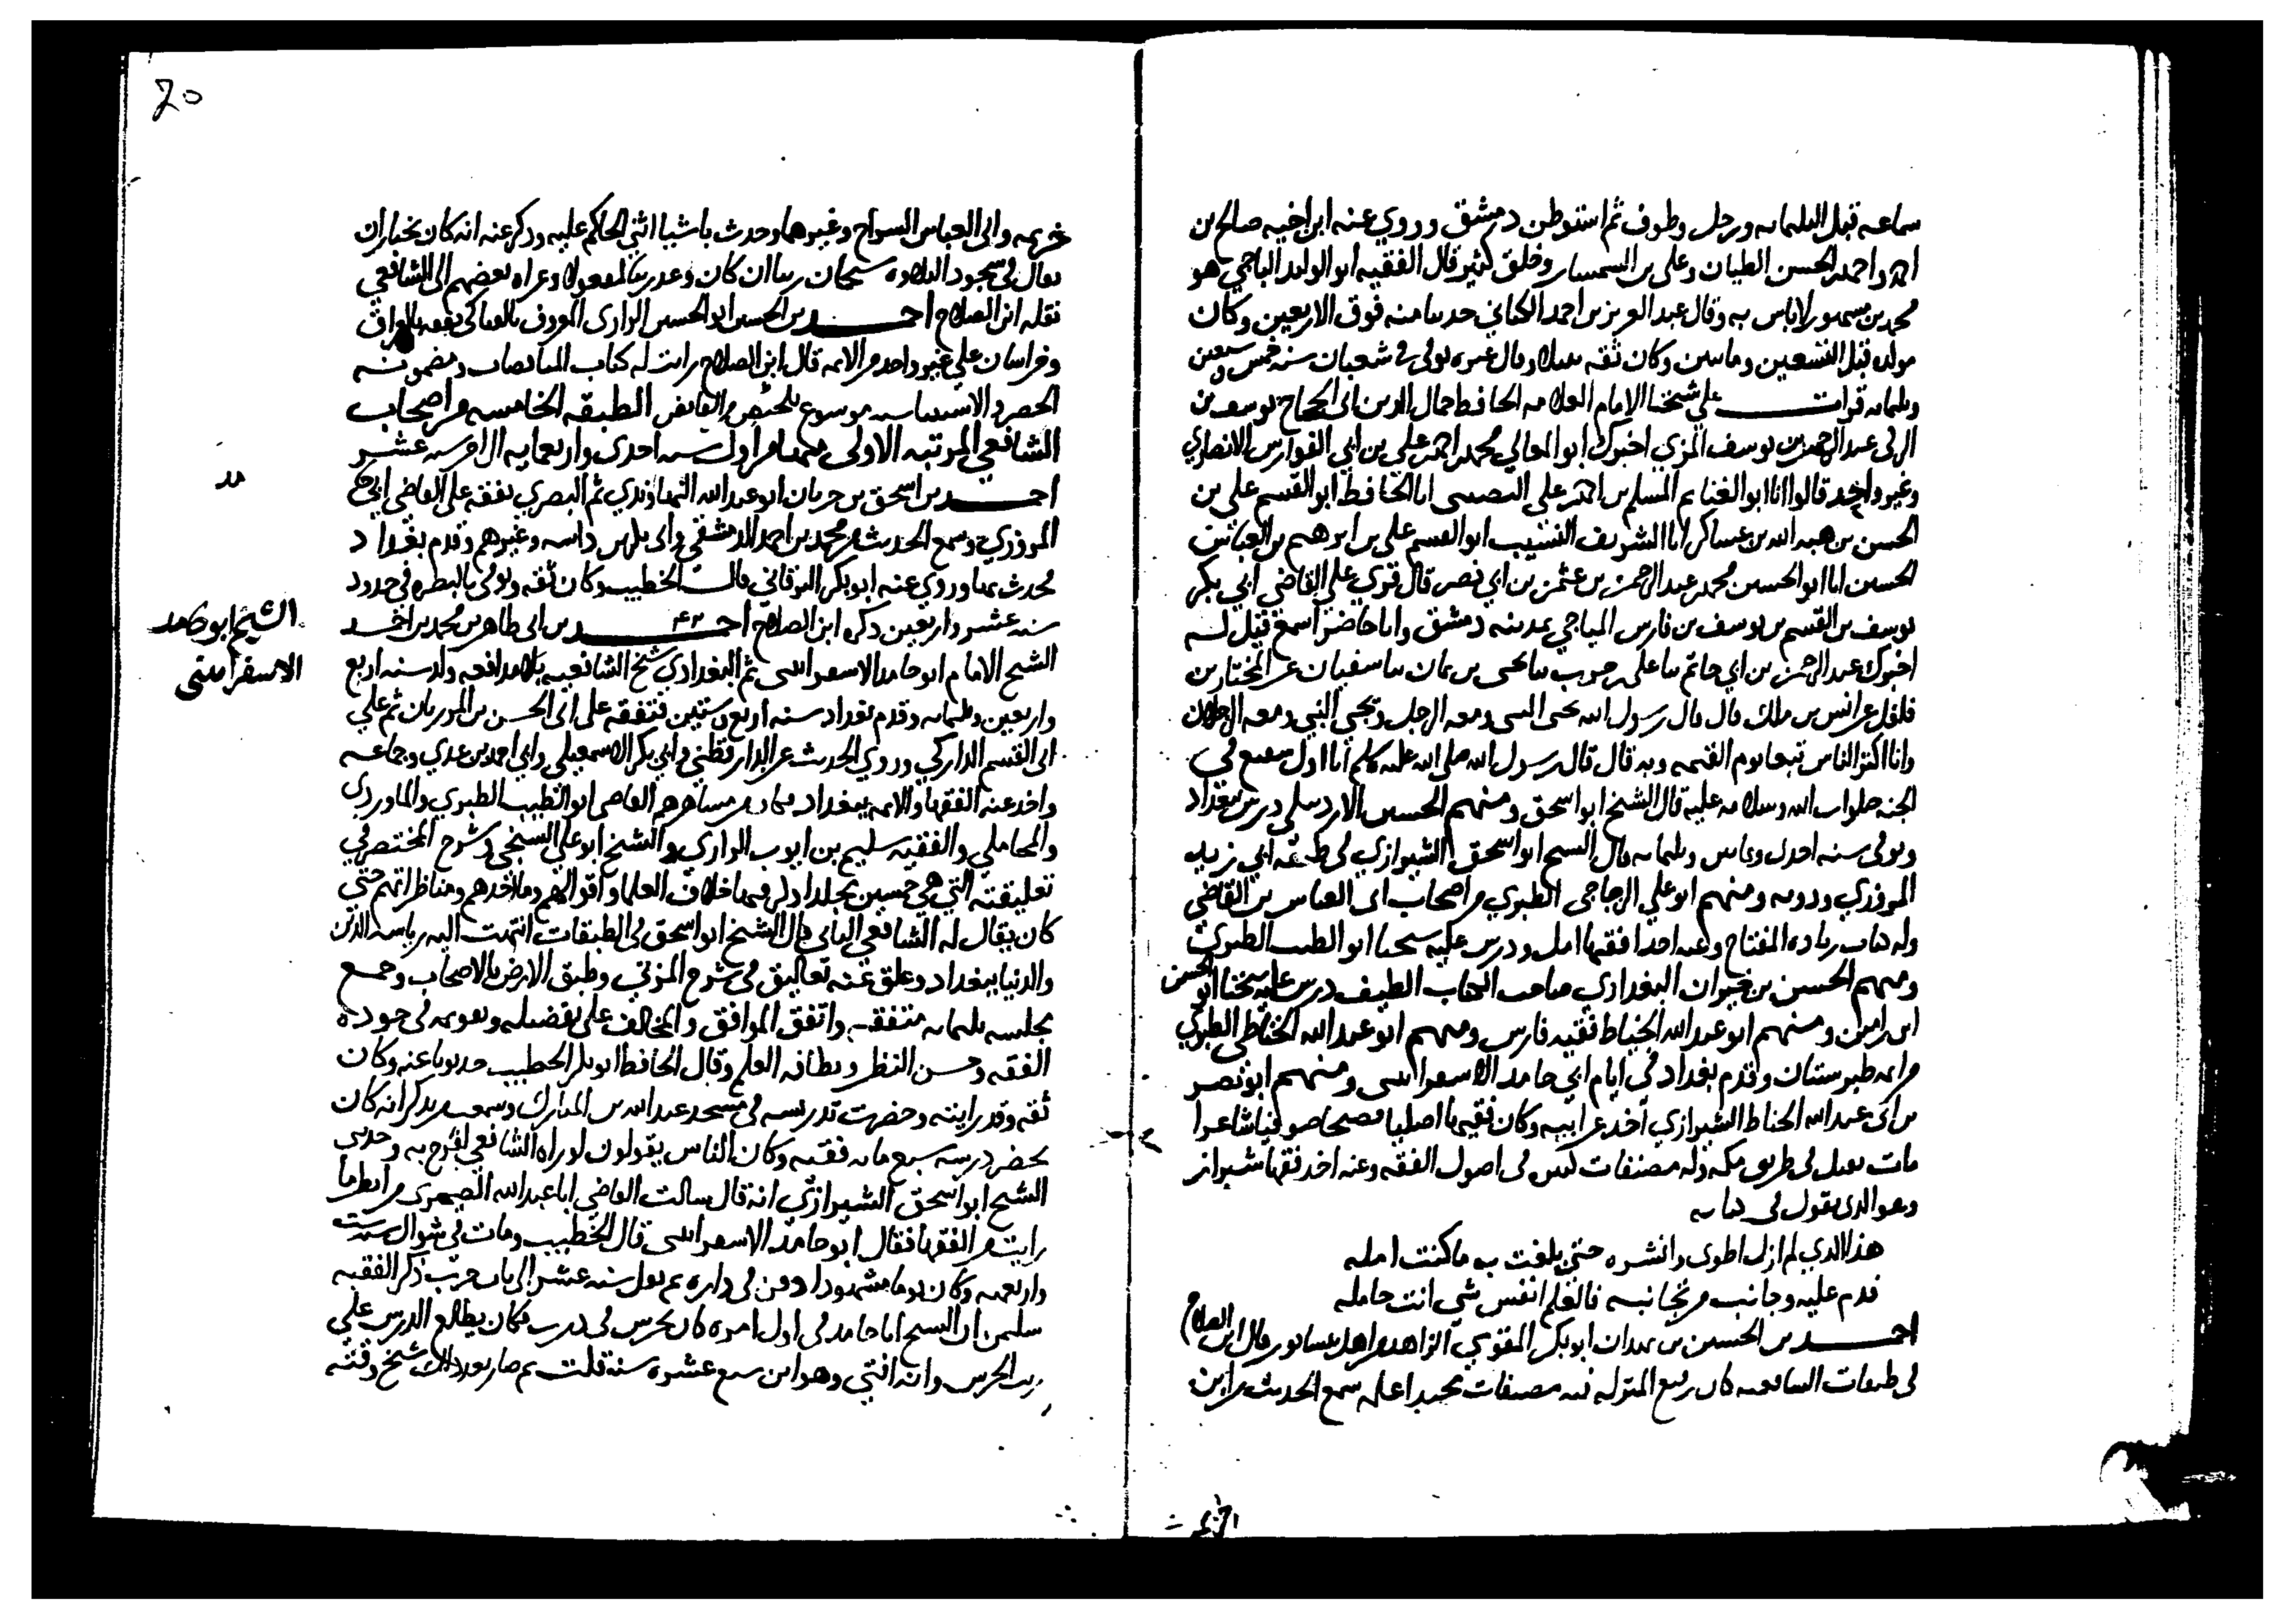 سماعه قبل الثلثمايه ورحل وطوف ثم استوطن دمشق وروي عنه ابن اخيه صالح بن
احمد واحمد بن الحسن الطيان وعلي بن السمسار وخلق كثير قال الفقيه ابو الوليد الباجي هو
محمد بن مشهور لاباس به وقال عبد العزيز بن احمد الكتاني حدثنا منه فوق الاربعين وكان
مولده قبل التسعين ومايتين وكان ثقه نبيلا وقال غيره توفي في شعبان سنه خمس وسبعين
وثلثمايه قرات علي شيخنا الامام العلامه الحافظ جمال الدين ابي الحجاج يوسف بن
الزكي عبد الرحمن بن يوسف المزي اخبرك ابو المعالي محمد بن احمد بن علي بن ابي الفوارس الانصاري
وغير واحد قالوا انا ابو الغنايم المسلم بن احمد بن علي النصيبي انا الحافظ ابو القسم علي بن
الحسن بن هبه الله بن عساكر انا الشريف النسيب ابو القسم علي بن ابرهيم بن العباس
الحسين انا ابو الحسين محمد بن عبد الرحمن بن عثمن بن ابي نصر قال قري علي القاضي ابي بكر
يوسف بن القسم بن يوسف بن فارس الميانجي بمدينه دمشق وانا حاضر اسمع قيل له
اخبرك عبد الرحمن بن ابي حاتم ثنا علي بن حرب ثنا يحيى بن يمان ثنا سفيان عن المختار بن
فلفل عن انس بن ملك قال قال رسول الله يجي النبي ومعه الرجل ويجي النبي ومعه الرجلان
وانا اكثر الناس تبعا يوم القيمه وبه قال قال رسول الله صلى الله عليه وسلم انا اول شفيع في
الجنه صلوات الله وسلامه عليه قال الشيخ ابو اسحق ومنهم الحسين الاردبيلي درس ببغداد
وتوفي سنه احدى وثمانين وثلثمايه قال الشيخ ابو اسحق الشيرازي في طبقه ابي زيد
المروزي ودونه ومنهم ابو علي الزجاجي الطبري من اصحاب ابي العباس بن القاضي
وله كتاب زياده المفتاح وعنه اخذ فقها امل ودرس عليه شيخنا ابو الطيب الطبري
ومنهم الحسن بن خيران البغدادي صاحب الكتاب اللطيف درس عليه شيخنا ابو الحسن
ابن رامين ومنهم ابو عبد الله الخياط فقيه فارس ومنهم ابو عبد الله الحناطي الطبري
من ايمه طبرستان وقدم بغداد في ايام ابي حامد الاسفرايني ومنهم ابو نصر
بن ابي عبد الله الحناط الشيرازي اخذ عن ابيه وكان فقيها اصوليا فصيحا صوفيا شاعرا
مات بفيد في طريق مكه وله مصنفات كثيره في اصول الفقه وعنه اخذ فقها شيراز
وهو الذي يقول في كتابه
هذا الذي لم ازل اطوي وانشره حتى بلغت به ما كنت امله
فدم عليه وجانب من يجانبه فالعلم انفس شي انت حامله
احمد بن الحسين بن مهران ابو بكر المقري الزاهد من اهل نيسابور قال ابن الصلاح
في طبقات الشافعيه كان رفيع المنزله فيه مصنفات سمع الحديث من ابن
20
خزيمه وابي العباس السراج وغيرهما وحدث باشيا اثني الحاكم عليه وذكر عنه انه كان يختار ان
يقال في سجود التلاوه سبحان ربنا ان كان وعد ربنا لمفعولا وعزاه بعضهم الى الشافعي
نقله ابن الصلاح احمد بن الحسين ابو الحسين الرازي المعروف تفقه بالعراق
وخراسان علي غير واحد من الايمه قال ابن الصلاح رايت له كتاب ومضمونه
الحصر والاستيناسه موسوع الفرايض الطبقه الخامسه من اصحاب
الشافعي المرتبه الاولى منها من اول سنه احدى واربعمايه الى اخر سنه عشر
احمد بن اسحق بن خربان ابو عبد الله النهاوندي ثم البصري تفقه علي القاضي ابي حامد
المروزي وسمع الحديث من محمد بن احمد الدمشقي وابي بكر بن داسه وغيرهم وقدم بغداد
محدث بها وروي عنه ابو بكر البرقاني قال الخطيب وكان ثقه وتوفي بالبصره في حدود
سنه عشر واربعين ذكره ابن الصلاح احمد بن ابي طاهر بن محمد بن احمد
الشيخ الامام ابو حامد الاسفرايني ثم البغدادي شيخ الشافعيه ولد سنه اربع
واربعين وثلثمايه وقدم بغداد سنه اربع وستين فتفقه على ابي الحسن بن المرزبان ثم علي
ابي القسم الداركي وروي الحديث عن الدارقطني وابي بكر الاسمعيلي وابي احمد بن عدي وجماعه
واخذ عنه الفقها والايمه ببغداد القاضي ابو الطيب الطبري والماوردي
والمحاملي والفقيه سليم بن ايوب الرازي والشيخ ابو علي السنجي وشرح المختصر في
تعليقته التي هي خمسين مجلدا ذكر فيها خلاف العلما واقوالهم وماخذهم ومناظراتهم حتى
كان يقال له الشافعي الثاني قال الشيخ ابو اسحق في الطبقات انتهت اليه رياسه الدين
والدنيا ببغداد وعلق عنه تعاليق في شرح المزني وطبق الارض بالاصحاب وجمع
مجلسه ثلثمايه متفقه واتفق الموافق والمخالف على تفضيله وتقديمه في جوده
الفقه وحسن النظر ونظافه العلم وقال الحافظ ابو بكر الخطيب حدثونا عنه وكان
ثقه وقد رايته وحضرت تدريسه في مسجد عبد الله بن المبارك وسمعت من يذكر انه كان
يحضر درسه سبع مايه فقيه وكان الناس يقولون لو راه الشافعي لفرح به وحدثني
الشيخ ابو اسحق الشيرازي انه قال سالت القاضي ابا عبد الله الصيمري من انظر ما
رايت من الفقها فقال ابو حامد الاسفرايني قال الخطيب ومات في شوال سنه ست
واربعمه وكان يوما مشهودا ودفن في داره ثم نقل سنه عشر الى باب حرب ذكر الفقيه
سليمن ان الشيخ ابا حامد في اول امره كان يحرس في درب فكان يطالع الدرس علي
زيت الحرس وانه افتي وهو ابن سبع عشره سنة قلت ثم صار بعد ذلك شيخ وقته
الشيخ ابو حامد
الاسفرايني